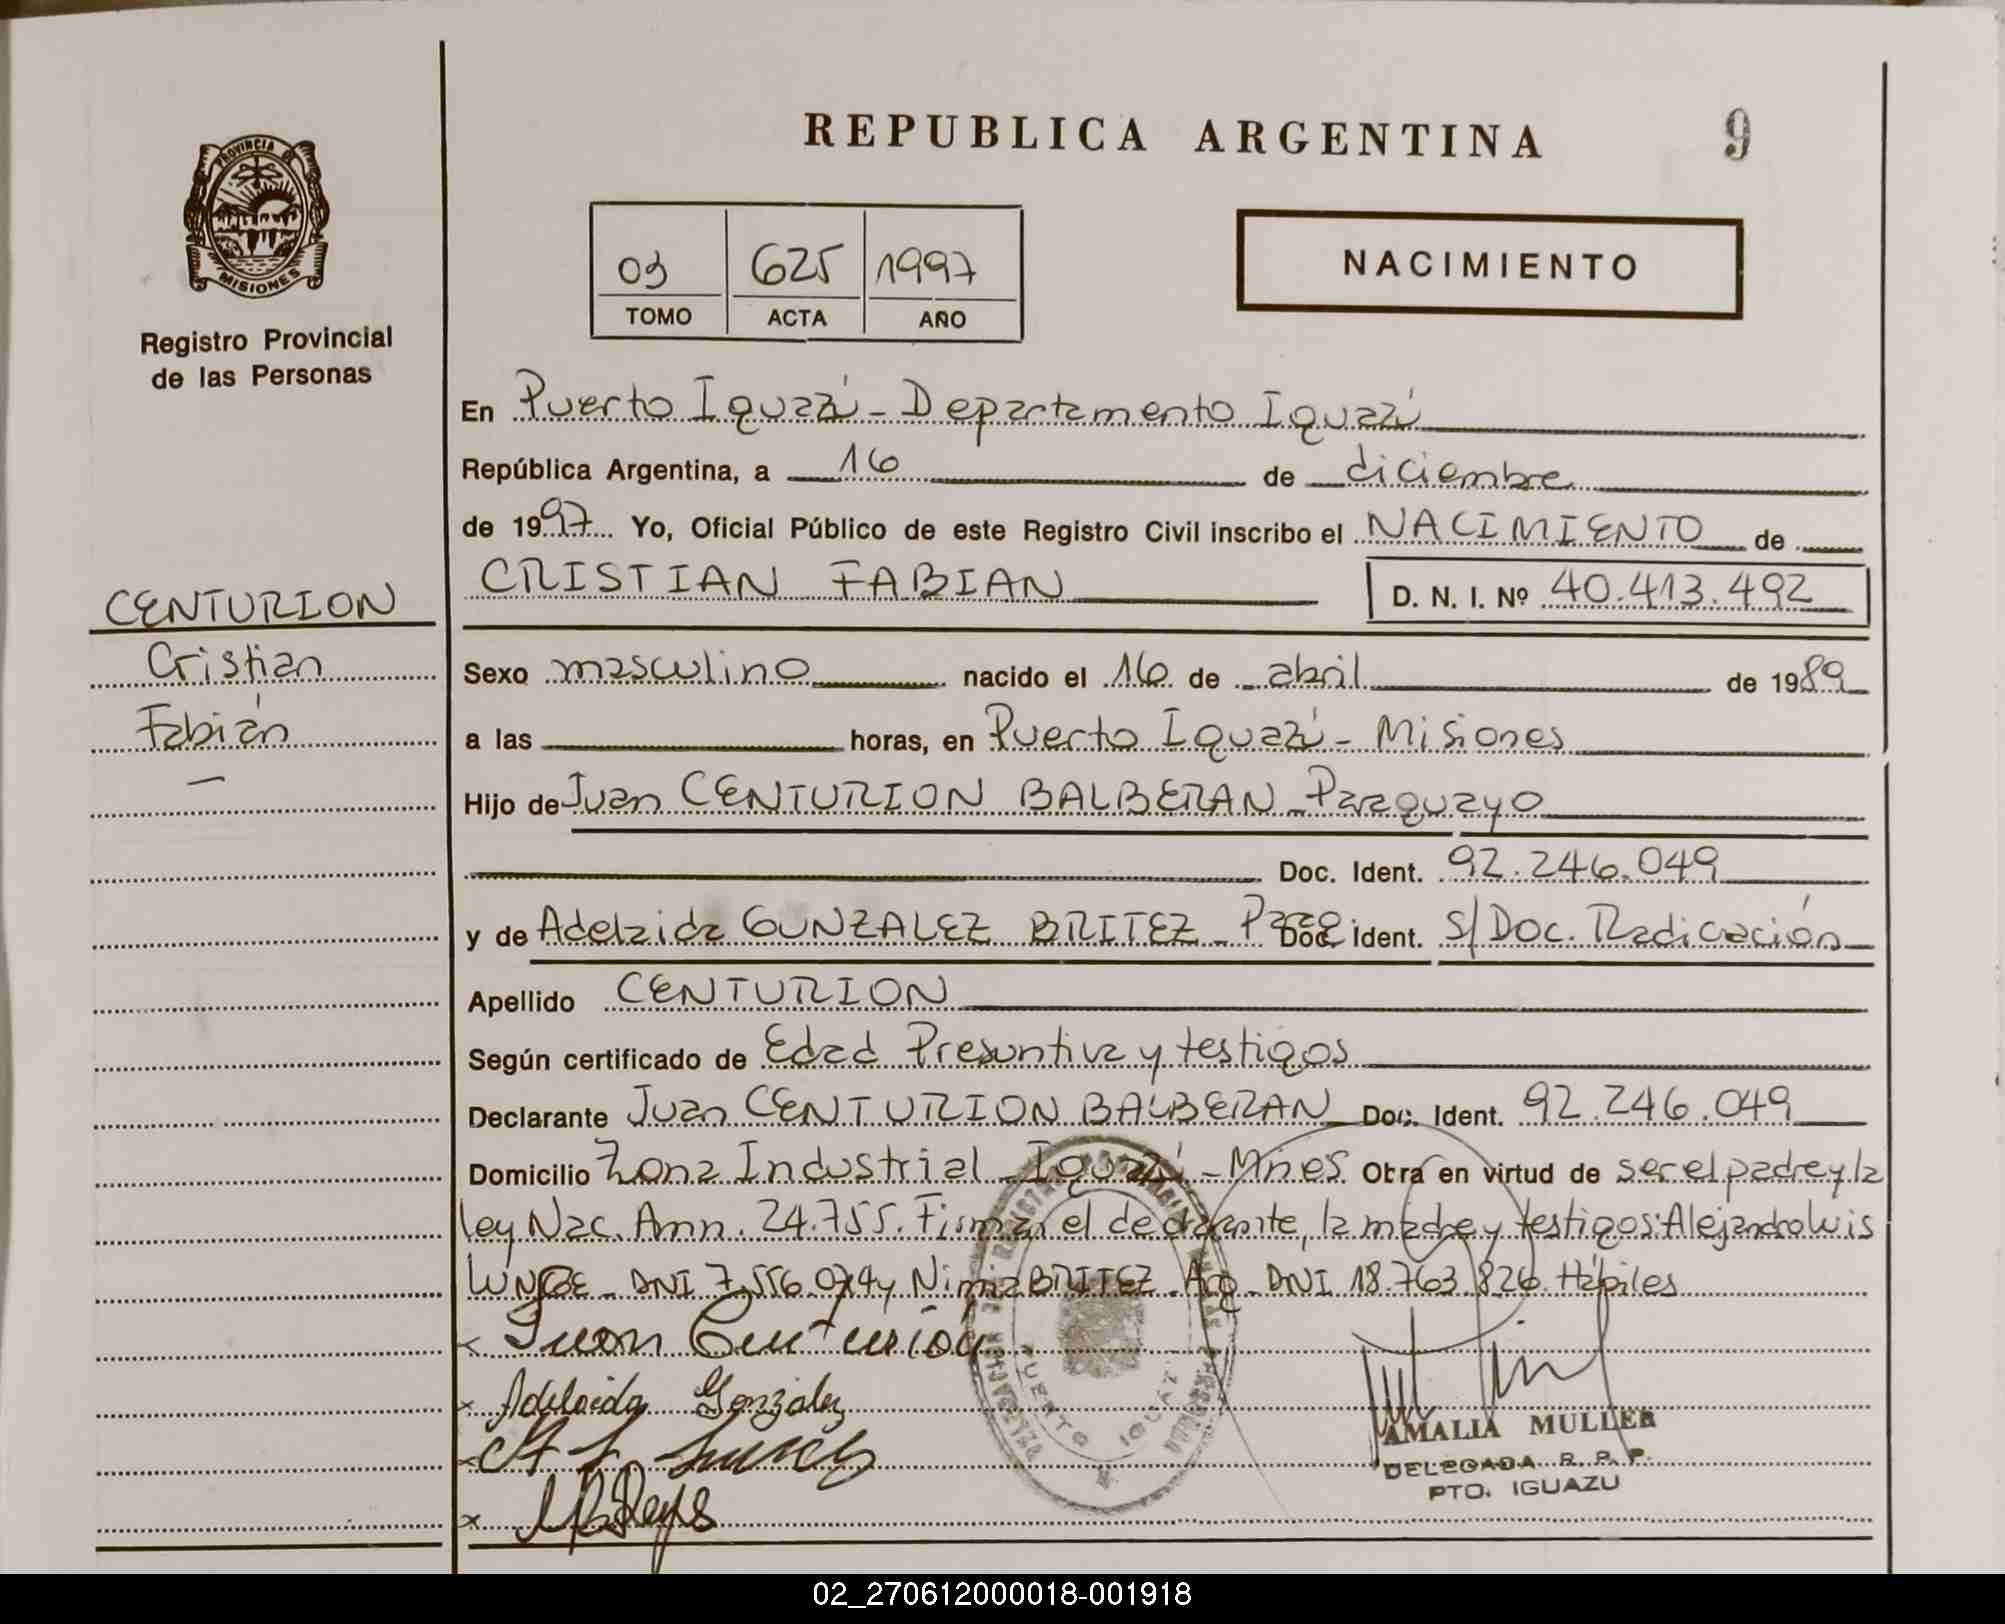 REPUBLICA ARGENTINA
9
PROVINCIA DE
MISIONES
Registro Provincial
de las Personas
03 625 1997
TOMO ACTA AÑO
NACIMIENTO
En Puerto Iguazú - Departamento Iguazú
República Argentina, a 16 de diciembre
de 1997 Yo, Oficial Público de este Registro Civil inscribo el NACIMIENTO de
CRISTIAN FABIAN D. N. I. Nº 40.413.492
CENTURION
Cristian
Fabián
Sexo masculino nacido el 16 de abril de 1989
a las horas, en Puerto Iguazú - Misiones
Hijo de Juan CENTURION BALBERAN - Paraguayo
Doc. Ident. 92.246.049
y de Adelaida GUNZALEZ BRITEZ - Parag Doc. Ident. S/Doc. Radicación
Apellido CENTURION
Según certificado de Edad Presuntiva y testigos
Declarante Juan CENTURION BALBERAN Doc. Ident. 92.246.049
Domicilio Zona Industrial - Iguazú - Mnes Obra en virtud de ser el padre y la
ley Nac. Ann. 24.755. Firman el declarante, la madre y testigos: Alejandro Luis
DNI 7.556.074 y BRITEZ - Arg - DNI 18.763.826 Hábiles
x Juan Centurion
x Adelaida Gonzalez
x
x
PUERTO IGUAZU
AMALIA MULLER
DELEGADA R. P. P.
PTO. IGUAZU
02_270612000018-001918